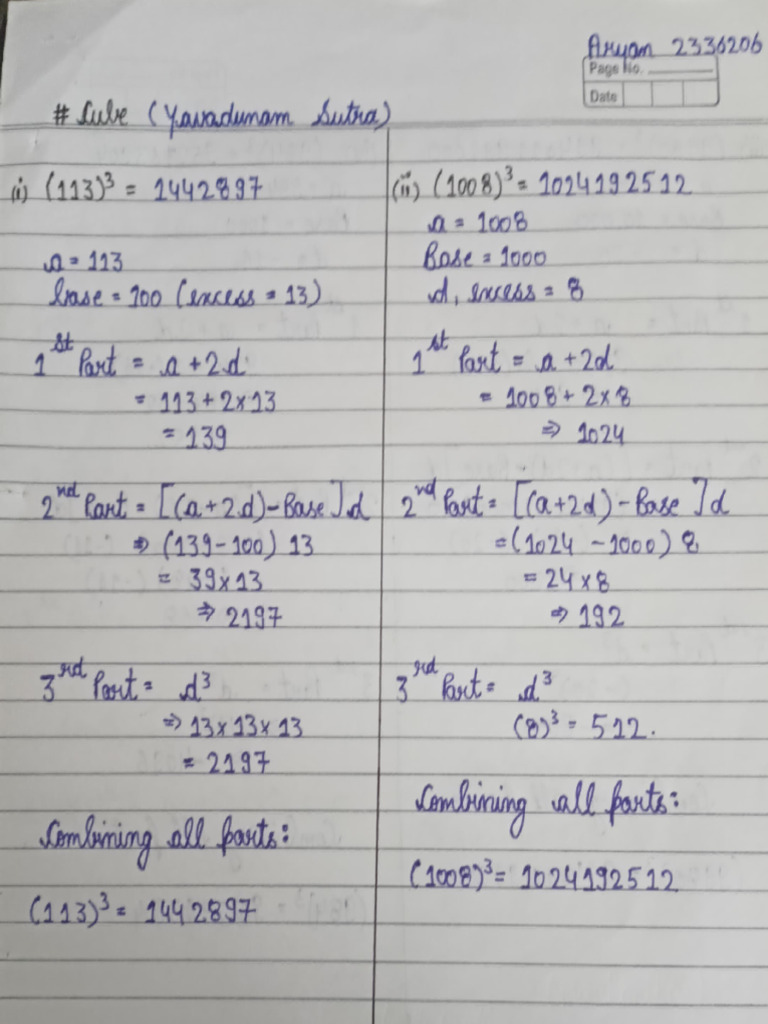 Aryan 2336206
Page No.
Date
# Cube (Yavadunam Sutra)
(i) (113)³ = 1442897
a = 113
base = 100 (excess = 13)
1st Part = a + 2d
= 113 + 2 × 13
= 139
2nd Part = [(a + 2d) - Base] d
⇒ (139 - 100) 13
= 39 × 13
⇒ 2197
3rd Part = d³
⇒ 13 × 13 × 13
= 2197
Combining all parts:
(113)³ = 1442897
(ii) (1008)³ = 1024192512
a = 1008
Base = 1000
d, excess = 8
1st Part = a + 2d
= 1008 + 2 × 8
⇒ 1024
2nd Part = [(a + 2d) - Base] d
= (1024 - 1000) 8
= 24 × 8
⇒ 192
3rd Part = d³
(8)³ = 512.
Combining all parts:
(1008)³ = 1024192512